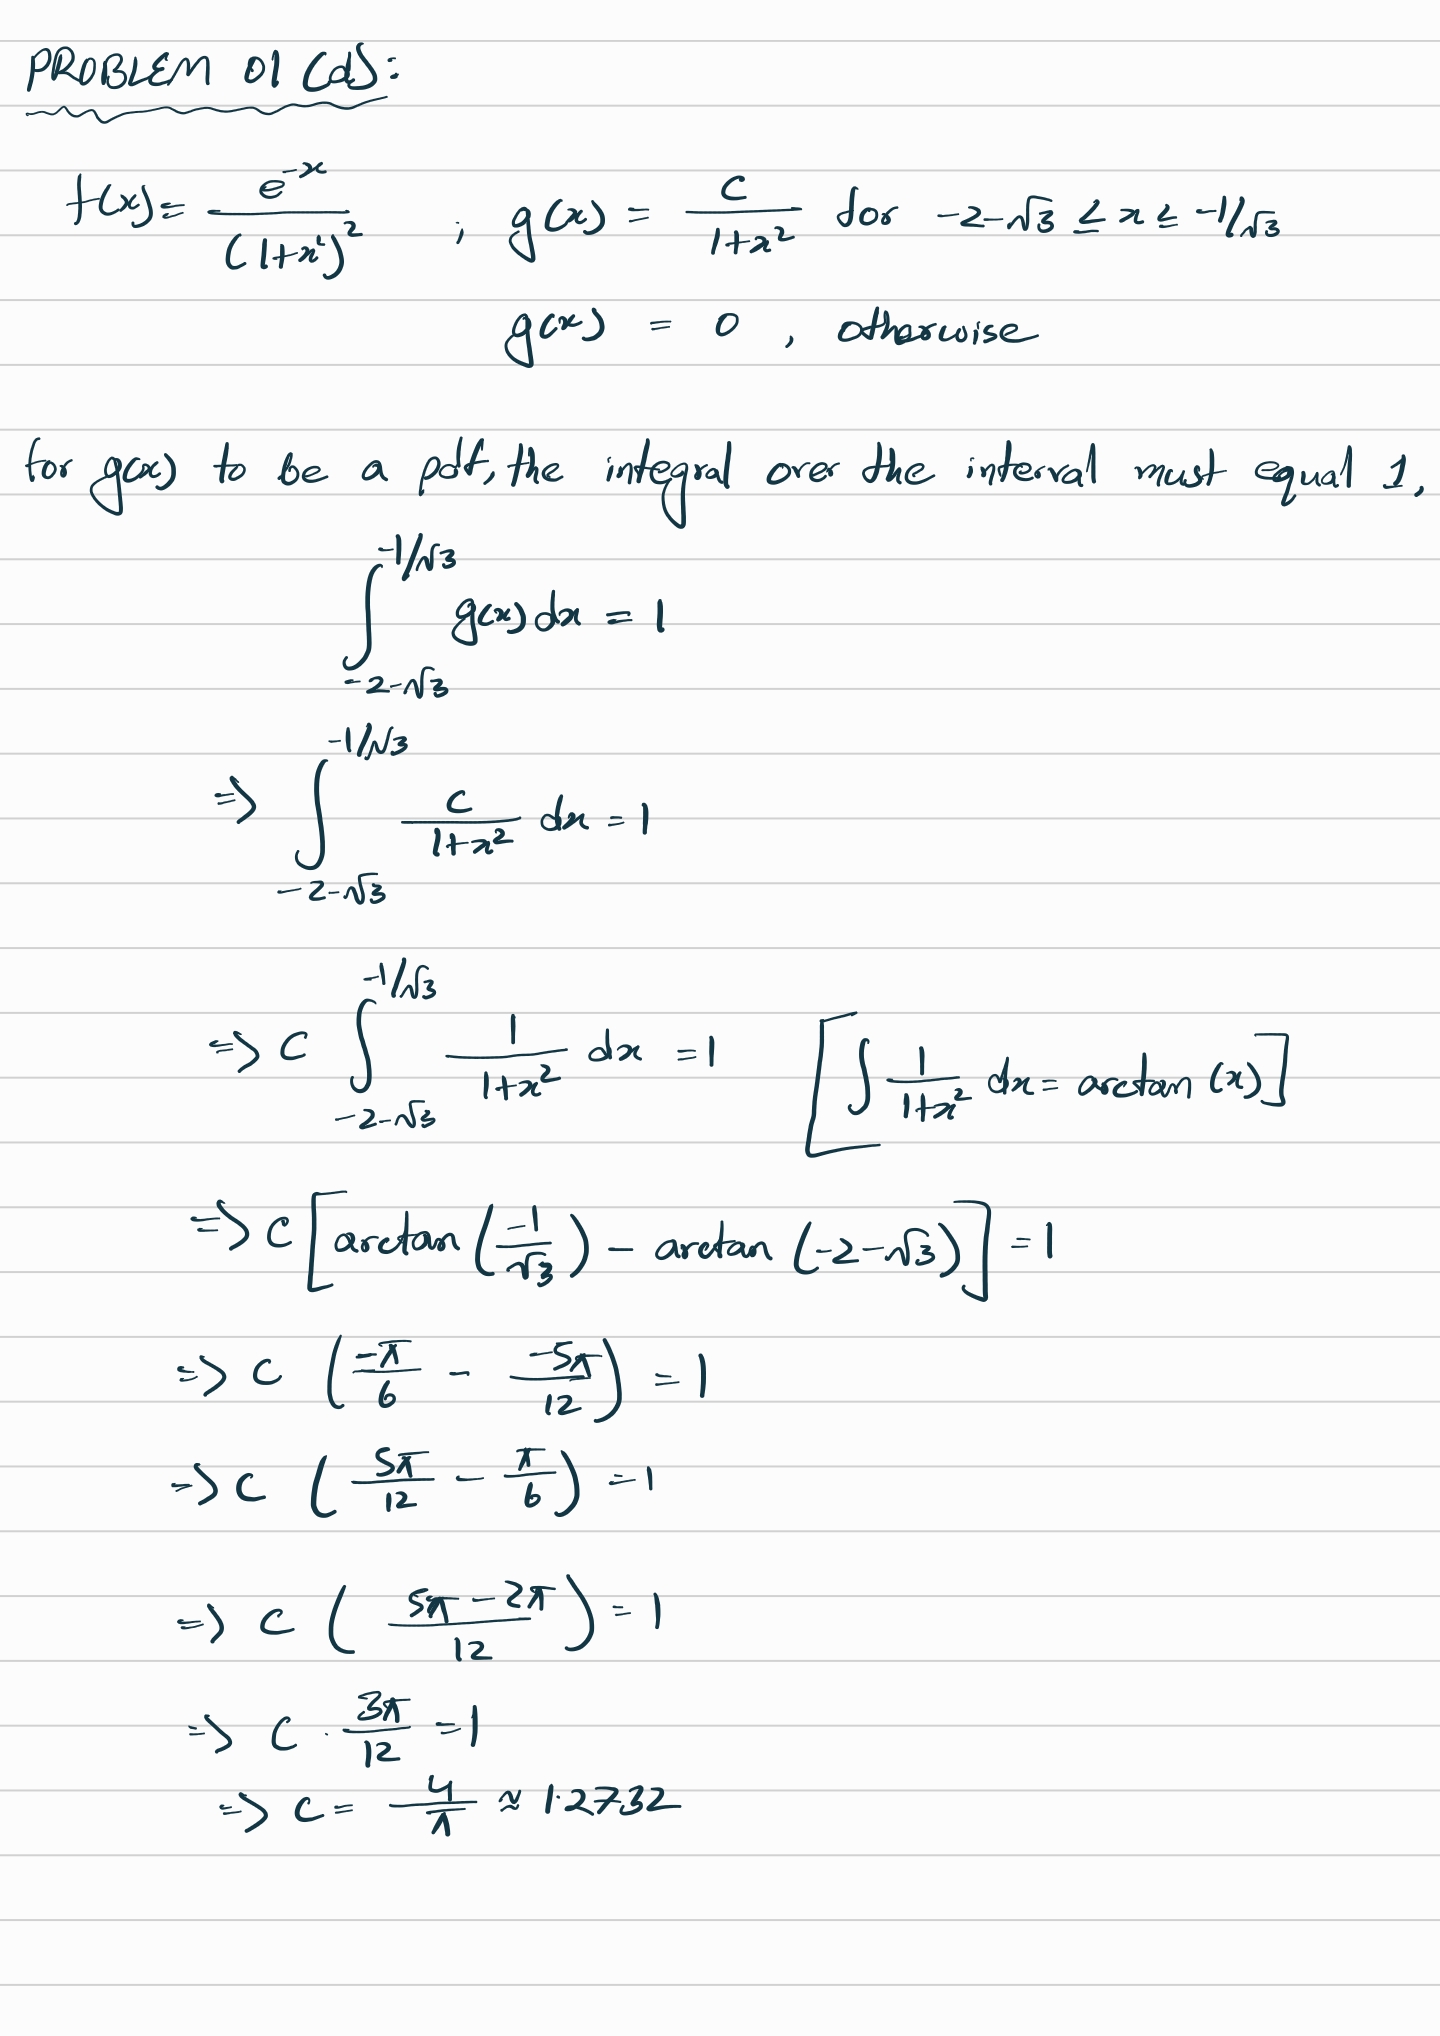 PROBLEM 01 (d):
f(x) = e^{-x} / (1+x²)² ; g(x) = c / (1+x²) for -2-√3 ≤ x ≤ -1/√3
g(x) = 0 , otherwise
for g(x) to be a pdf, the integral over the interval must equal 1.
∫_{-2-√3}^{-1/√3} g(x) dx = 1
=> ∫_{-2-√3}^{-1/√3} c / (1+x²) dx = 1
=> c ∫_{-2-√3}^{-1/√3} 1 / (1+x²) dx = 1 [∫ 1 / (1+x²) dx = arctan (x)]
=> c [arctan (-1/√3) - arctan (-2-√3)] = 1
=> c (-π/6 - -5π/12) = 1
=> c (5π/12 - π/6) = 1
=> c ((5π - 2π) / 12) = 1
=> c · 3π/12 = 1
=> c = 4/π ≈ 1.2732